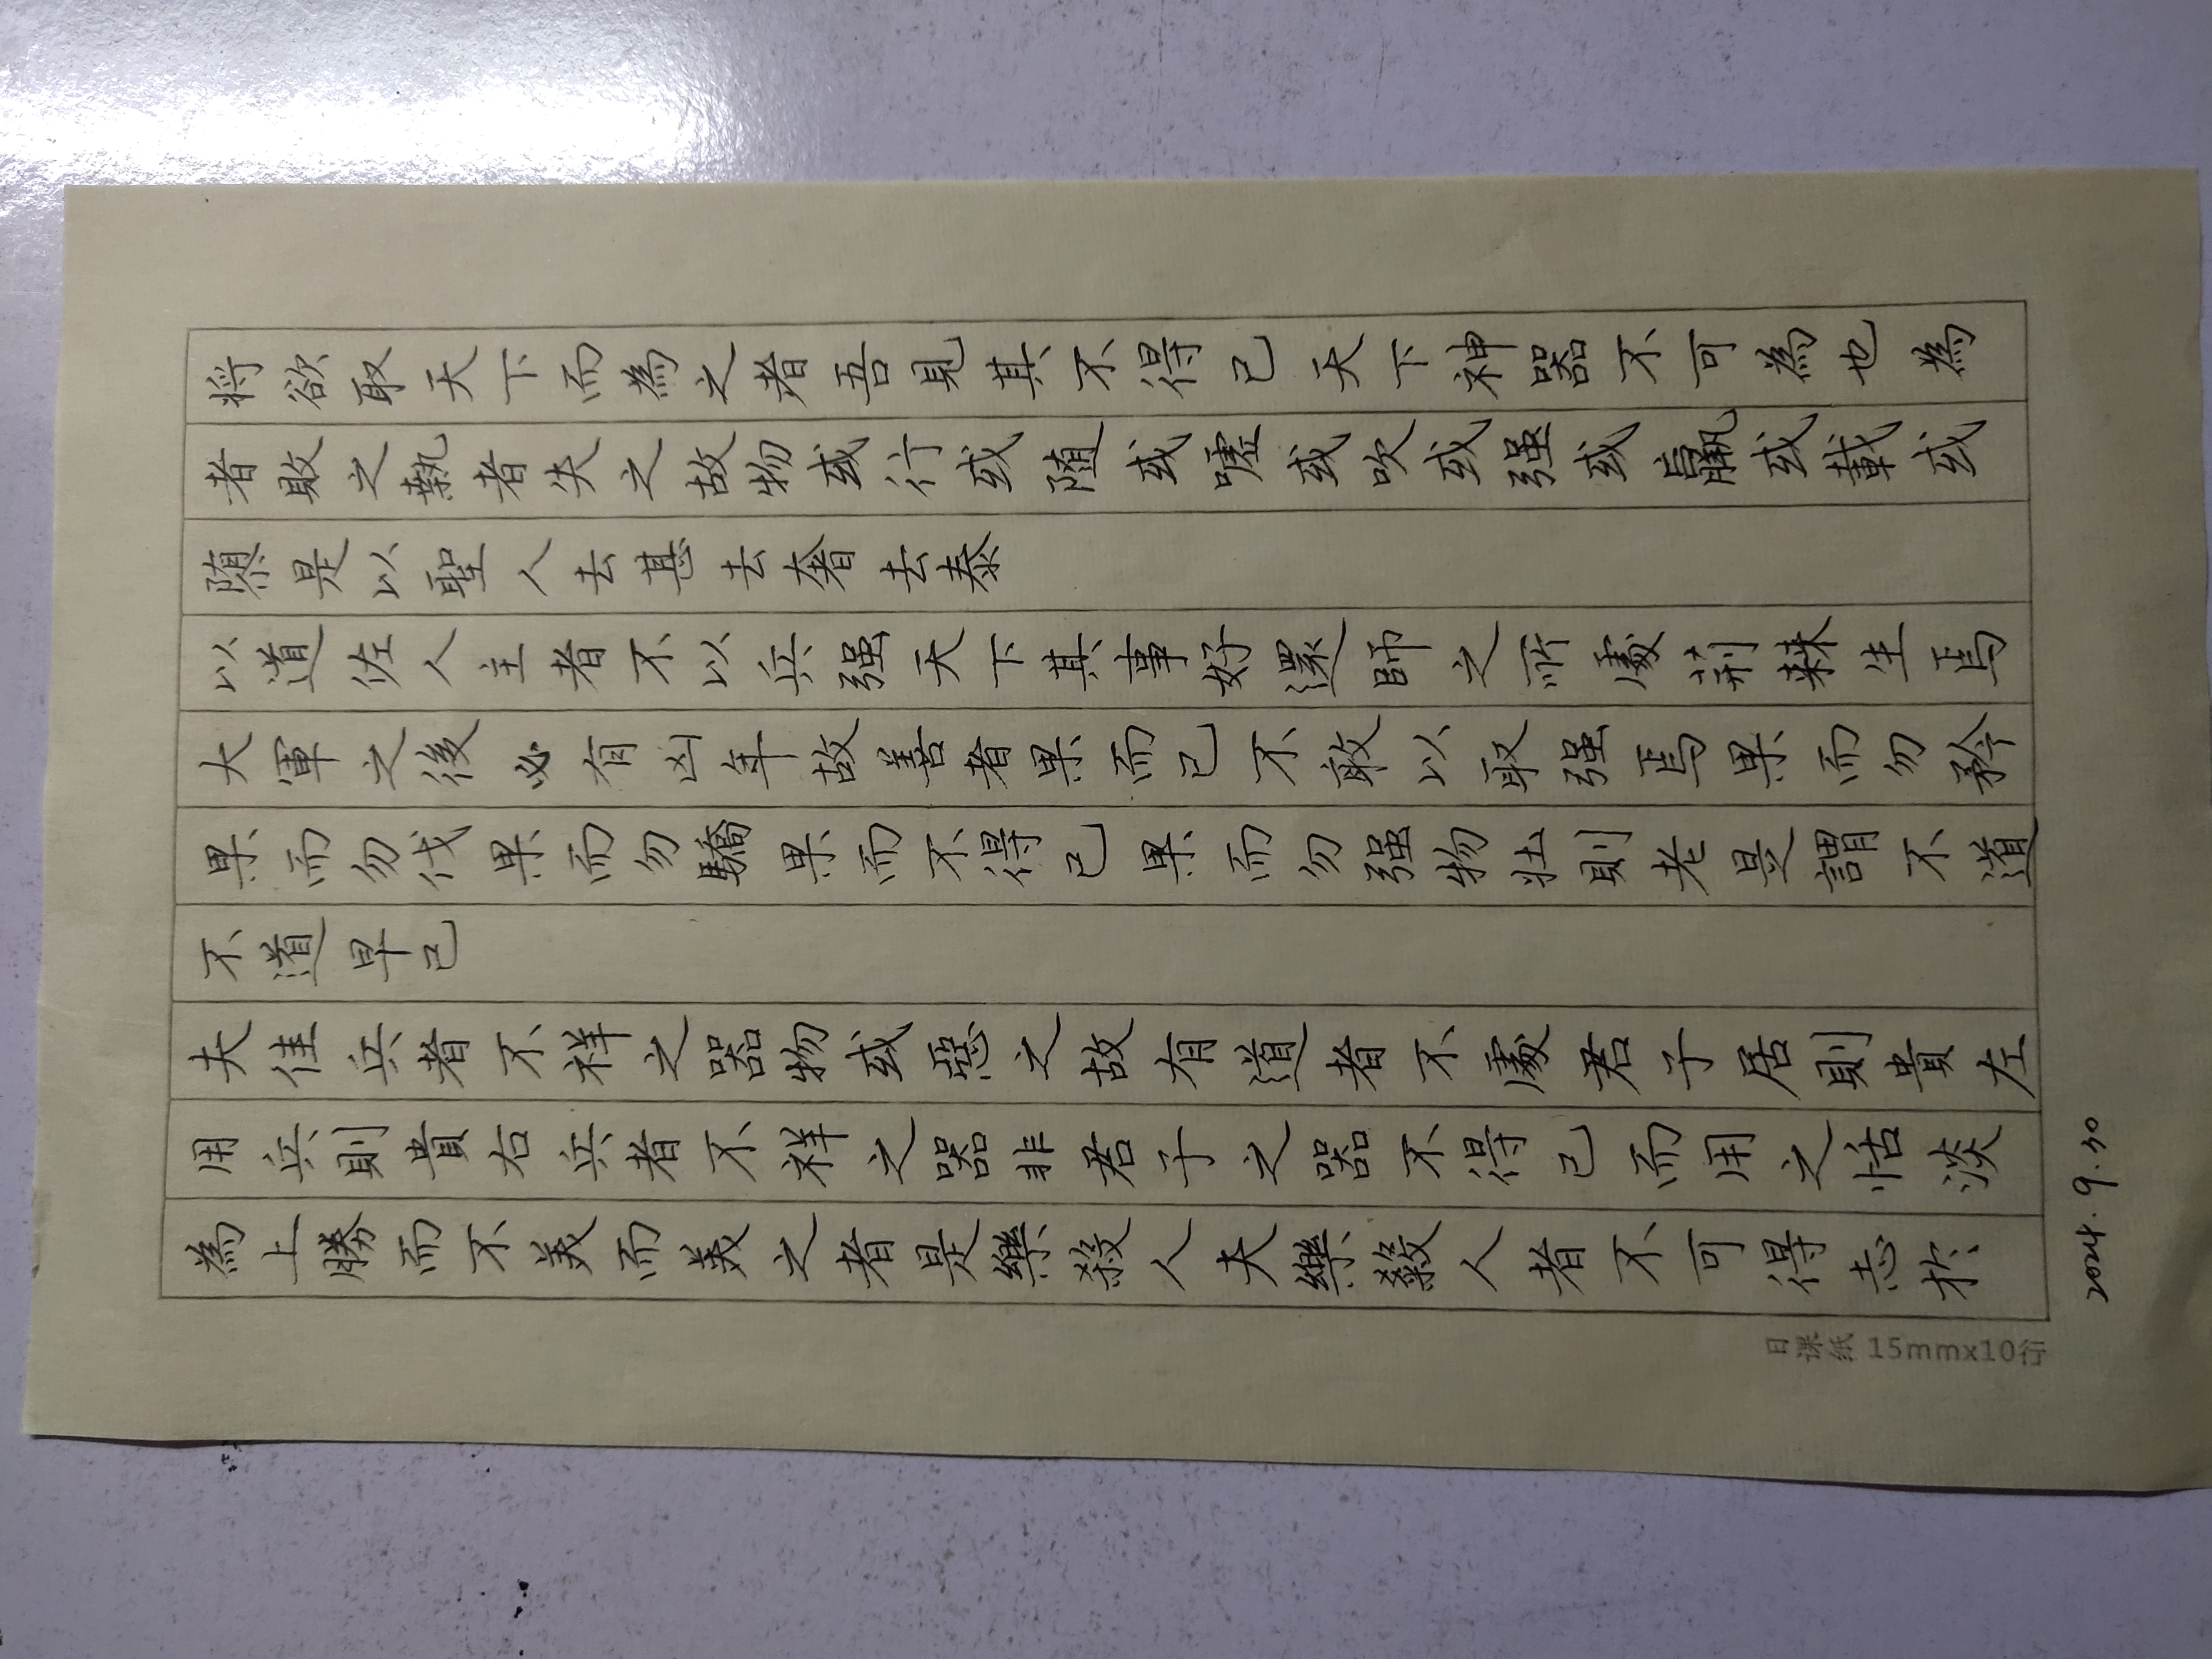 将欲取天下而為之者吾見其不得已天下神器不可為也為
者敗之執者失之故物或行或随或嘘或吹或强或羸或載或
隳是以聖人去甚去奢去泰
以道佐人主者不以兵强天下其事好還師之所處荆棘生焉
大軍之後必有凶年故善者果而已不敢以取强焉果而勿矜
果而勿伐果而勿驕果而不得已果而勿强物壯則老是謂不道
不道早已
夫佳兵者不祥之器物或惡之故有道者不處君子居則貴左
用兵則貴右兵者不祥之器非君子之器不得已而用之恬淡
為上勝而不美而美之者是樂殺人夫樂殺人者不可得志於
日课纸 15mmx10行
2024.9.30